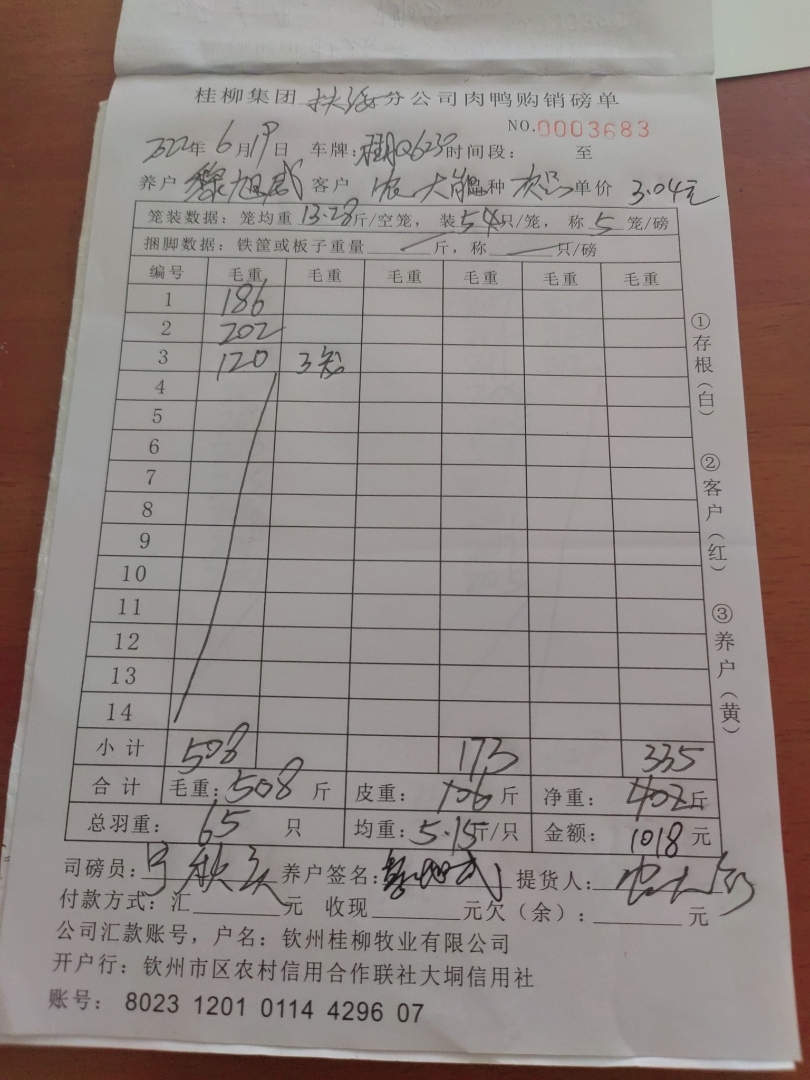 桂柳集团 扶绥 分公司肉鸭购销磅单
NO.0003683
2022年6月19日 车牌:桂 Q6230 时间段: 至
养户 黎旭武 客户 农大 品种 次品 单价 3.04元
笼装数据:笼均重 13.28 斤/空笼,装 54 只/笼,称 5 笼/磅
捆脚数据:铁筐或板子重量 斤,称 只/磅
编号 毛重 毛重 毛重 毛重 毛重 毛重
1 186
2 202
3 120 3笼
4
5
6
7
8
9
10
11
12
13
14
小计 508 173 335
合计 毛重:508 斤 皮重:106 斤 净重:402 斤
总羽重:65 只 均重:5.15 斤/只 金额:1018 元
司磅员: 养户签名: 提货人:
付款方式:汇 元 收现 元欠(余): 元
公司汇款账号,户名:钦州桂柳牧业有限公司
开户行:钦州市区农村信用合作联社大垌信用社
账号:8023 1201 0114 4296 07
①存根(白) ②客户(红) ③养户(黄)